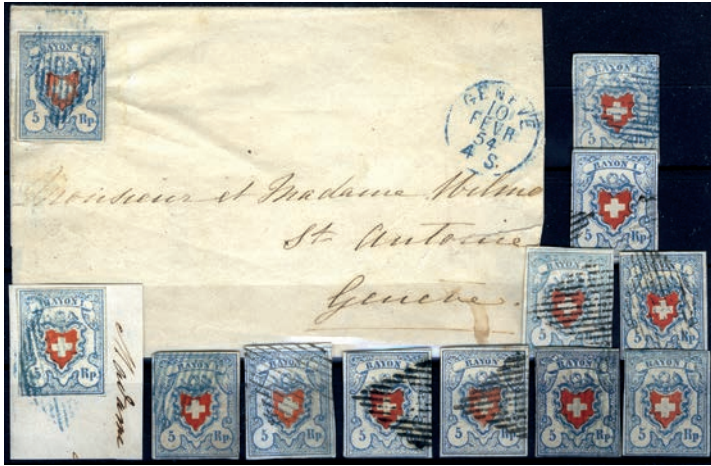 RAYON I.
5 Rp.
GENEVE
10
FEVR
54
4 S.
Monsieur et Madame Wilmo
St Antoine
Geneve.
RAYON I
5 Rp.
RAYON I
5 Rp.
RAYON
5
RAYON
5 Rp.
RAYON
5 Rp.
Madame
RAYON I
5 Rp.
RAYON
5 Rp.
RAYON
5 Rp.
RAYON
5 Rp.
RAYON I
5 Rp.
RAYON I
5 Rp.